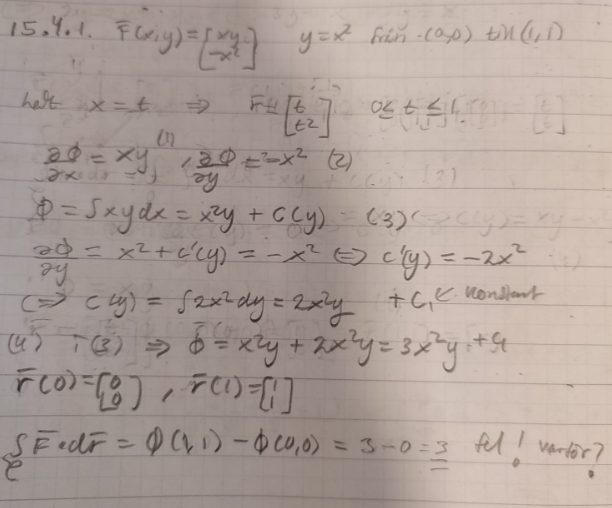 15.4.1. F̄(x,y) = [xy -x²] y = x² från (0,0) till (1,1)
låt x = t ⇒ r̄ = [t t²] 0 ≤ t ≤ 1
∂Φ/∂x = xy (1), ∂Φ/∂y = -x² (2)
Φ = ∫xydx = x²y + C(y) (3)
∂Φ/∂y = x² + C'(y) = -x² ⇔ C'(y) = -2x²
⇔ C(y) = ∫2x²dy = 2x²y + C₁ ← konstant
(4) i (3) ⇒ Φ = x²y + 2x²y = 3x²y + C₁
r̄(0) = [0 0], r̄(1) = [1 1]
∫C F̄•dr̄ = Φ(1,1) - Φ(0,0) = 3 - 0 = 3 fel! varför?